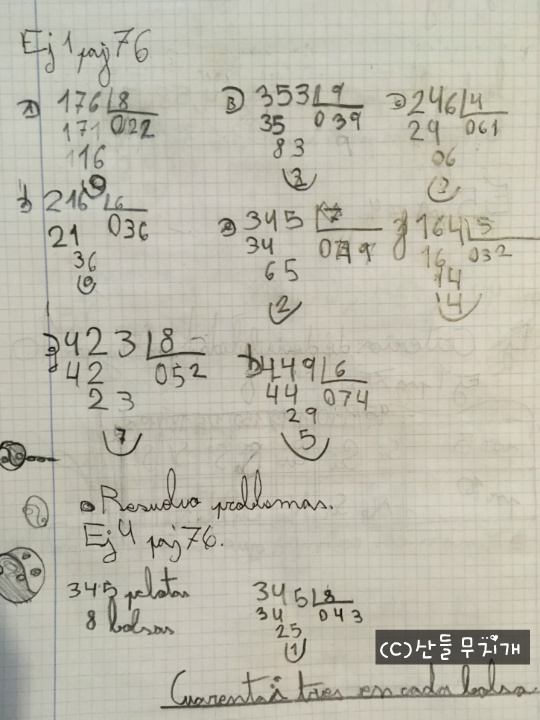 Ej 1 paj 76
A) 176 8 B) 353 9 C) 246 4
171 022 35 039 29 061
116 83 06
0 2 2
D) 216 6 345 7 164 5
21 036 34 049 16 032
36 65 14
0 2 4
g) 423 8 h) 449 6
42 052 44 074
23 29
7 5
Resuelvo problemas.
Ej 4 paj 76.
345 pelotas 345 8
8 bolsas 34 043
25
1
(C)산들 무지개
Cuarenta i tres en cada bolsa.